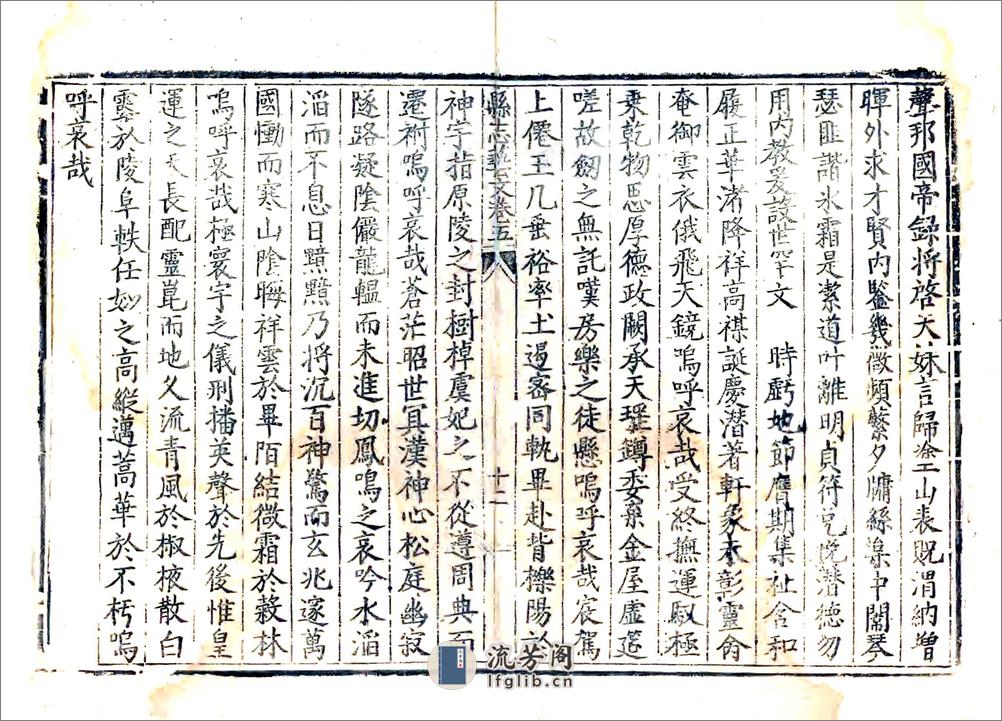 聲邦國帝錄將啓天妹言歸塗山表貺渭納增
暉外求才賢内鑒幾微頻蘩夕牖絲枲中闈琴
瑟匪諧氷霜是潔道叶離明貞符兌悅潜德勿
用内教爰設世罕文　時虧地節膺期集祉含和
履正華渚降祥高禖誕慶潜著軒象永彰靈命
奄御雲衣俄飛天鏡嗚呼哀哉受終撫運馭極
乗乾物思厚德政闕承天瑤罇委奠金屋虛筵
嗟故劒之無託嘆房樂之徒懸嗚呼哀哉宸駕
上僊王几垂裕率土遏密同軌畢赴背櫟陽於
縣志藝文卷五　十二
神宇指原陵之封樹悼虞妃之不從遵周典而
遷祔嗚呼哀哉蒼茫昭世冥漠神心松庭幽寂
隧路凝陰儼龍輴而未進切鳳鳴之哀吟水滔
滔而不息日黯黯乃將沉百神驚而玄兆邃萬
國慟而寒山陰晦祥雲於畢陌結微霜於穀林
嗚呼哀哉極寰宇之儀刑播英聲於先後惟皇
運之天長配靈崑而地久流青風於椒掖散白
露於陵阜軼任姒之高縱邁蒿華於不朽嗚
呼哀哉
流芳阁
lfglib.cn